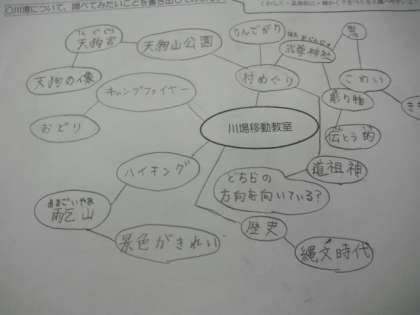 〇川場について、調べてみたいことを書き出してみよう
てんぐぐう
天狗宮
天狗山公園
りんごがり
武尊神社
村めぐり
こわい
天狗の像
キャンプファイヤー
おどり
川場移動教室
道祖神
どちらの
方向を向いている？
ハイキング
あまごいやま
雨乞山
景色がきれい
歴史
縄文時代